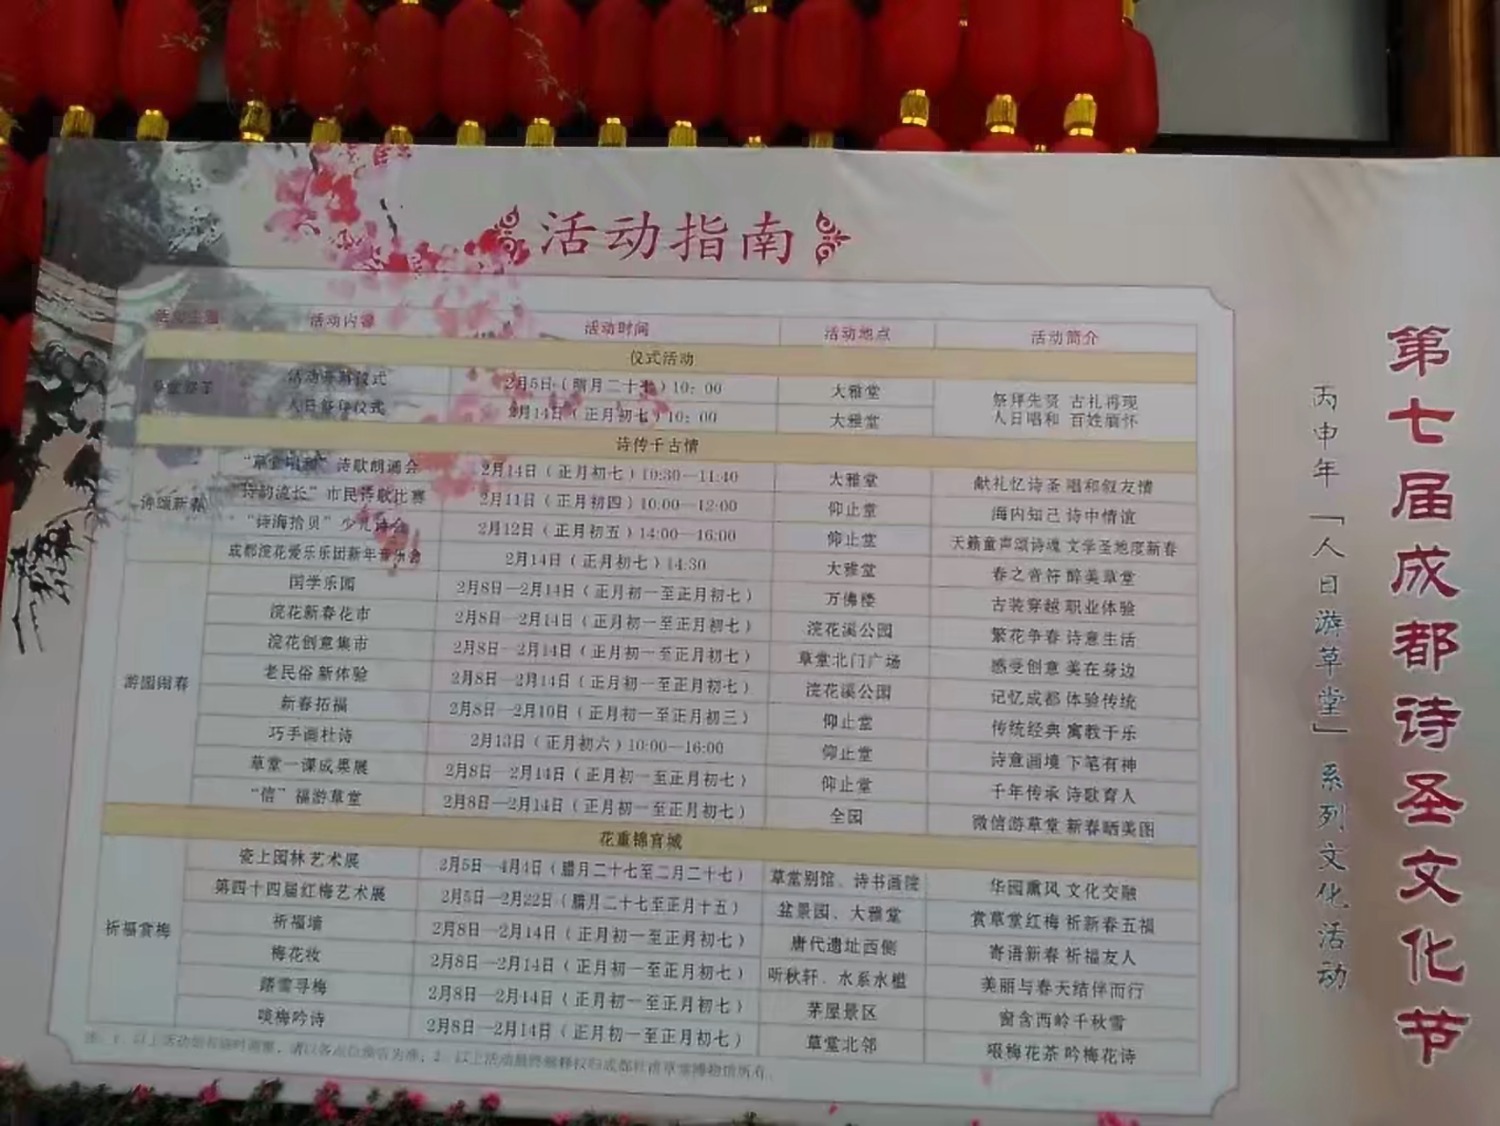 活动指南
活动主题 活动内容 活动时间 活动地点 活动简介
仪式活动
活动开幕仪式 2月5日(腊月二十七)10：00 大雅堂 祭拜先贤 古礼再现
人日祭拜仪式 2月14日(正月初七)10：00 大雅堂 人日唱和 百姓缅怀
诗传千古情
诗颂新春
“草堂唱和”诗歌朗诵会 2月14日(正月初七)10:30—11:40 大雅堂 献礼忆诗圣 唱和叙友情
“诗韵流长”市民诗歌比赛 2月11日(正月初四)10:00—12:00 仰止堂 海内知己 诗中情谊
“诗海拾贝”少儿诗会 2月12日(正月初五)14:00—16:00 仰止堂 天籁童声颂诗魂 文学圣地度新春
成都浣花爱乐乐团新年音乐会 2月14日(正月初七)14:30 大雅堂 春之音符 醉美草堂
游园闹春
国学乐园 2月8日—2月14日(正月初一至正月初七) 万佛楼 古装穿越 职业体验
浣花新春花市 2月8日—2月14日(正月初一至正月初七) 浣花溪公园 繁花争春 诗意生活
浣花创意集市 2月8日—2月14日(正月初一至正月初七) 草堂北门广场 感受创意 美在身边
老民俗 新体验 2月8日—2月14日(正月初一至正月初七) 浣花溪公园 记忆成都 体验传统
新春拓福 2月8日—2月10日(正月初一至正月初三) 仰止堂 传统经典 寓教于乐
巧手画杜诗 2月13日(正月初六)10:00—16:00 仰止堂 诗意画境 下笔有神
草堂一课成果展 2月8日—2月14日(正月初一至正月初七) 仰止堂 千年传承 诗歌育人
“信”福游草堂 2月8日—2月14日(正月初一至正月初七) 全园 微信游草堂 新春晒美图
花重锦官城
祈福赏梅
瓷上园林艺术展 2月5日—4月4日(腊月二十七至二月二十七) 草堂别馆、诗书画院 华园熏风 文化交融
第四十四届红梅艺术展 2月5日—2月22日(腊月二十七至正月十五) 盆景园、大雅堂 赏草堂红梅 祈新春五福
祈福墙 2月8日—2月14日(正月初一至正月初七) 唐代遗址西侧 寄语新春 祈福友人
梅花妆 2月8日—2月14日(正月初一至正月初七) 听秋轩、水系水槛 美丽与春天结伴而行
踏雪寻梅 2月8日—2月14日(正月初一至正月初七) 茅屋景区 窗含西岭千秋雪
啖梅吟诗 2月8日—2月14日(正月初一至正月初七) 草堂北邻 啜梅花茶 吟梅花诗
注：1、以上活动如有临时调整，请以各点位预告为准；2、以上活动最终解释权归成都杜甫草堂博物馆所有。
丙申年「人日游草堂」系列文化活动
第七届成都诗圣文化节